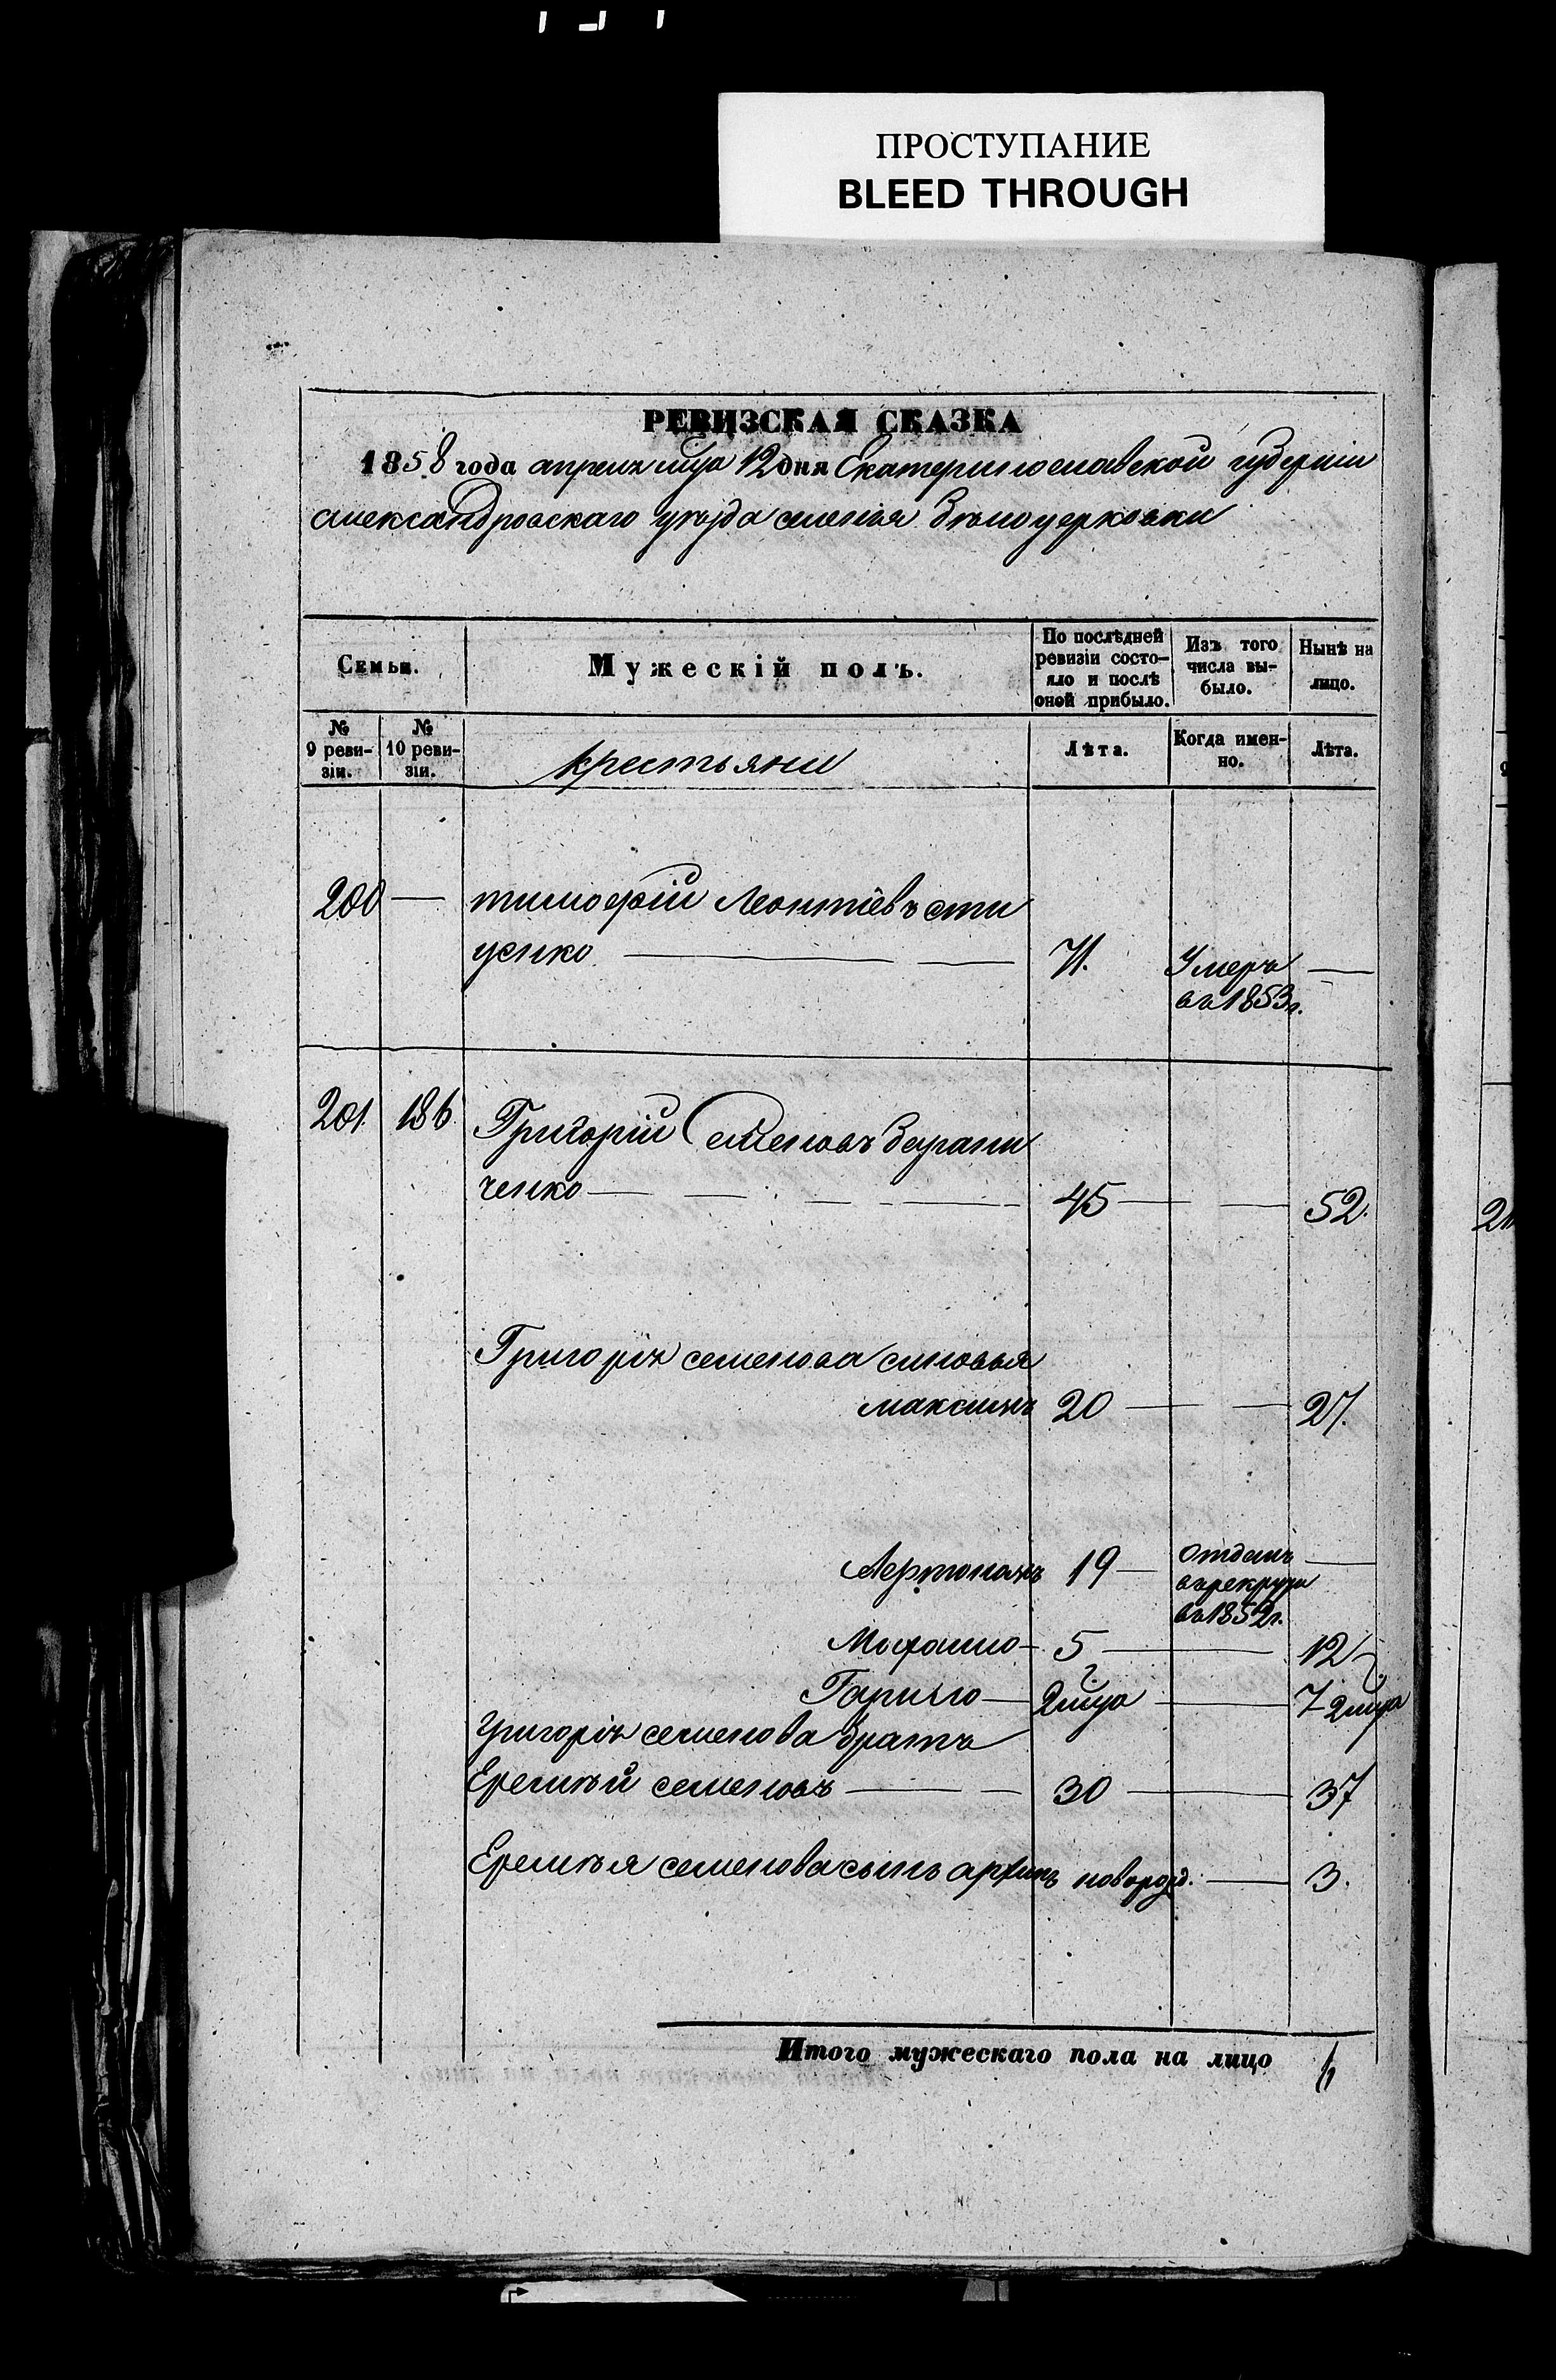 ПРОСТУПАНИЕ
BLEED THROUGH
РЕВИЗСКАЯ СКАЗКА
1858 года апреля мца 12 дня Екатеринославской губернiи
александровскаго уезда селенiя белоцерковки
Семьи.
Мужескiй полъ.
По послѣдней ревизiи состо-
яло и послѣ оной прибыло.
Изъ того числа вы-
было.
Нынѣ на лицо.
№ 9 реви-
зiи.
№ 10 реви-
зiи.
крестьяни
Лѣта.
Когда имен-
но.
Лѣта.
200 — тимофѣй Леонтiевъ сти
ценко — 71. Умеръ —
въ 1853г.
201. 186 Григорiй Семеновъ барани
ченко — 45 — 52.
Григорiя семенова синовья
максимъ 20 — 27.
19 — отданъ —
въ рекруты
въ 1852г.
5 — 12
2 мца — 7 2 мца
Григорiя семенова братъ
Еремѣй семеновъ — 30 — 37
Еремѣя семенова сынъ архипъ новорозд. — 3.
Итого мужескаго пола на лицо